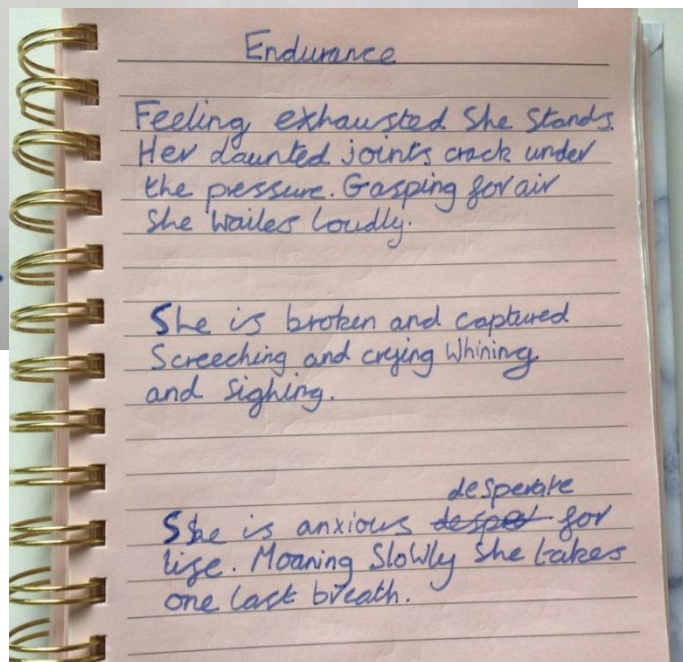 Endurance
Feeling exhausted She Stands.
Her daunted joints crack under
the pressure. Gasping for air
She wailes loudly.
She is broken and captured
Screeching and crying Whining
and Sighing.
desperate
She is anxious despet for
life. Moaning Slowly She takes
one last breath.